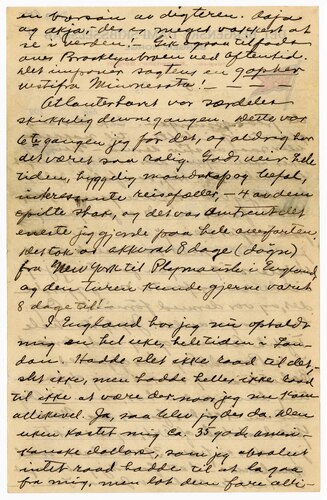 en
og
se i verden, — Gik ogsaa tilfods
over Brooklynbroen ved aftentid.
Det imponer sagtens en gopher
ut ifra Minnesota! —
Atlanterhavet var særdeles
skikkelig denne gangen. Dette var
6te gangen jeg for det, og aldrig har
det været saa rolig. Godt veir hele
tiden, hyggelig mandskap og befal,
interessante reisefæller, — 4 av dem
spilte shak, og det var omtrent det
eneste jeg gjorde paa hele overfarten
Det tok os akkorat 8 dage (døgn)
fra New York til Plymouth i England,
og den turen kunde gjerne varet
8 dage til! —
I England har jeg nu opholdt
mig en hel uke, hele tiden i Lon-
don. Hadde slet ikke raad til det,
slet ikke, men hadde heller ikke raad
til ikke at være der naar jeg nu kom
allikevel. Ja, saa blev jeg der da. Den
uken kostet mig ca. 35 gode ameri-
kanske dollars, som jeg absolut
intet raad hadde til at la gaa
fra mig, men lot dem fare alli-